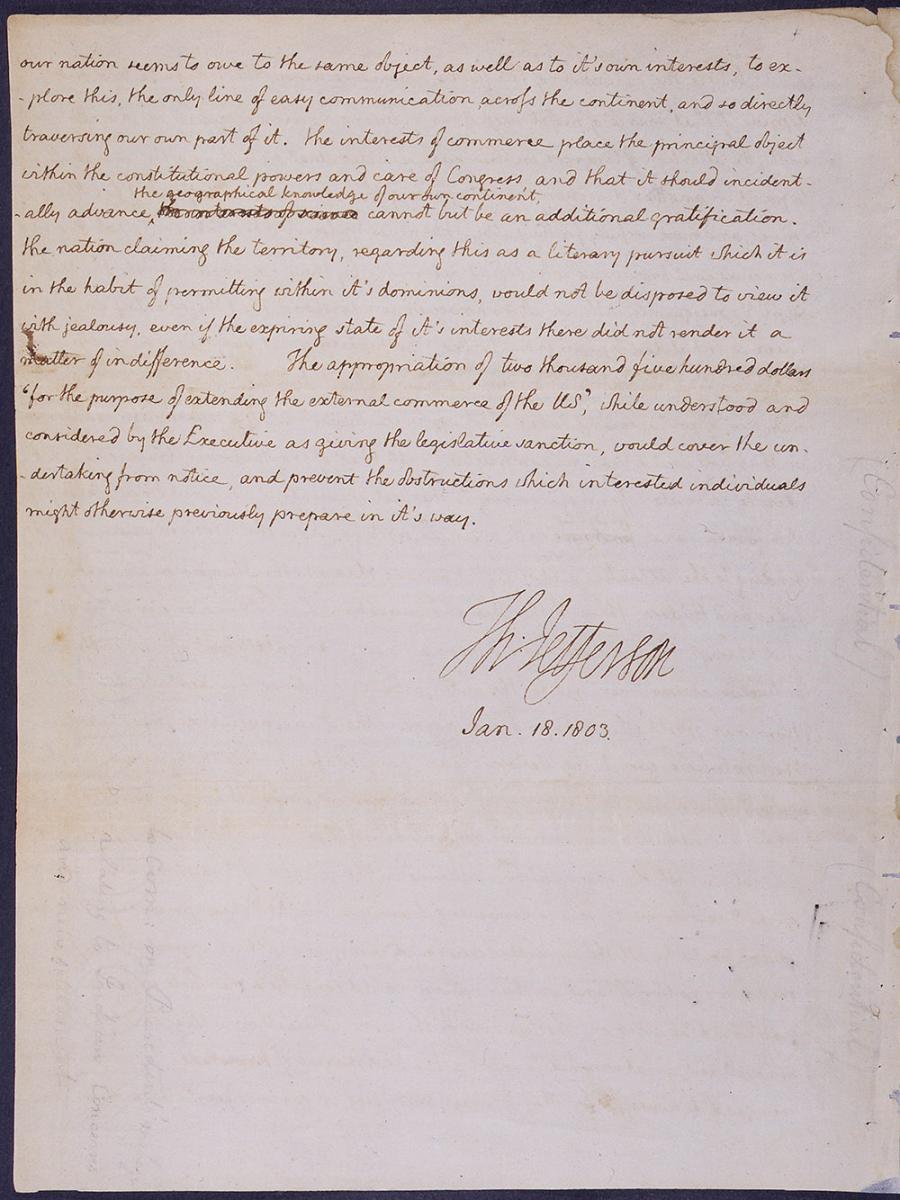 our nation seems to owe to the same object, as well as to it's own interests, to ex-
-plore this, the only line of easy communication across the continent, and so directly
traversing our own part of it. the interests of commerce place the principal object
within the constitutional powers and care of Congress, and that it should incident-
the geographical knowledge of our own continent,
-ally advance cannot but be an additional gratification.
the nation claiming the territory, regarding this as a literary pursuit which it is
in the habit of permitting within it's dominions, would not be disposed to view it
with jealousy, even if the expiring state of it's interests there did not render it a
matter of indifference. The appropriation of two thousand five hundred dollars
"for the purpose of extending the external commerce of the US", while understood and
considered by the Executive as giving the legislative sanction, would cover the un-
-dertaking from notice, and prevent the obstructions which interested individuals
might otherwise previously prepare in it's way.
Th: Jefferson
Jan. 18. 1803.
(Confidential)
(Confidential